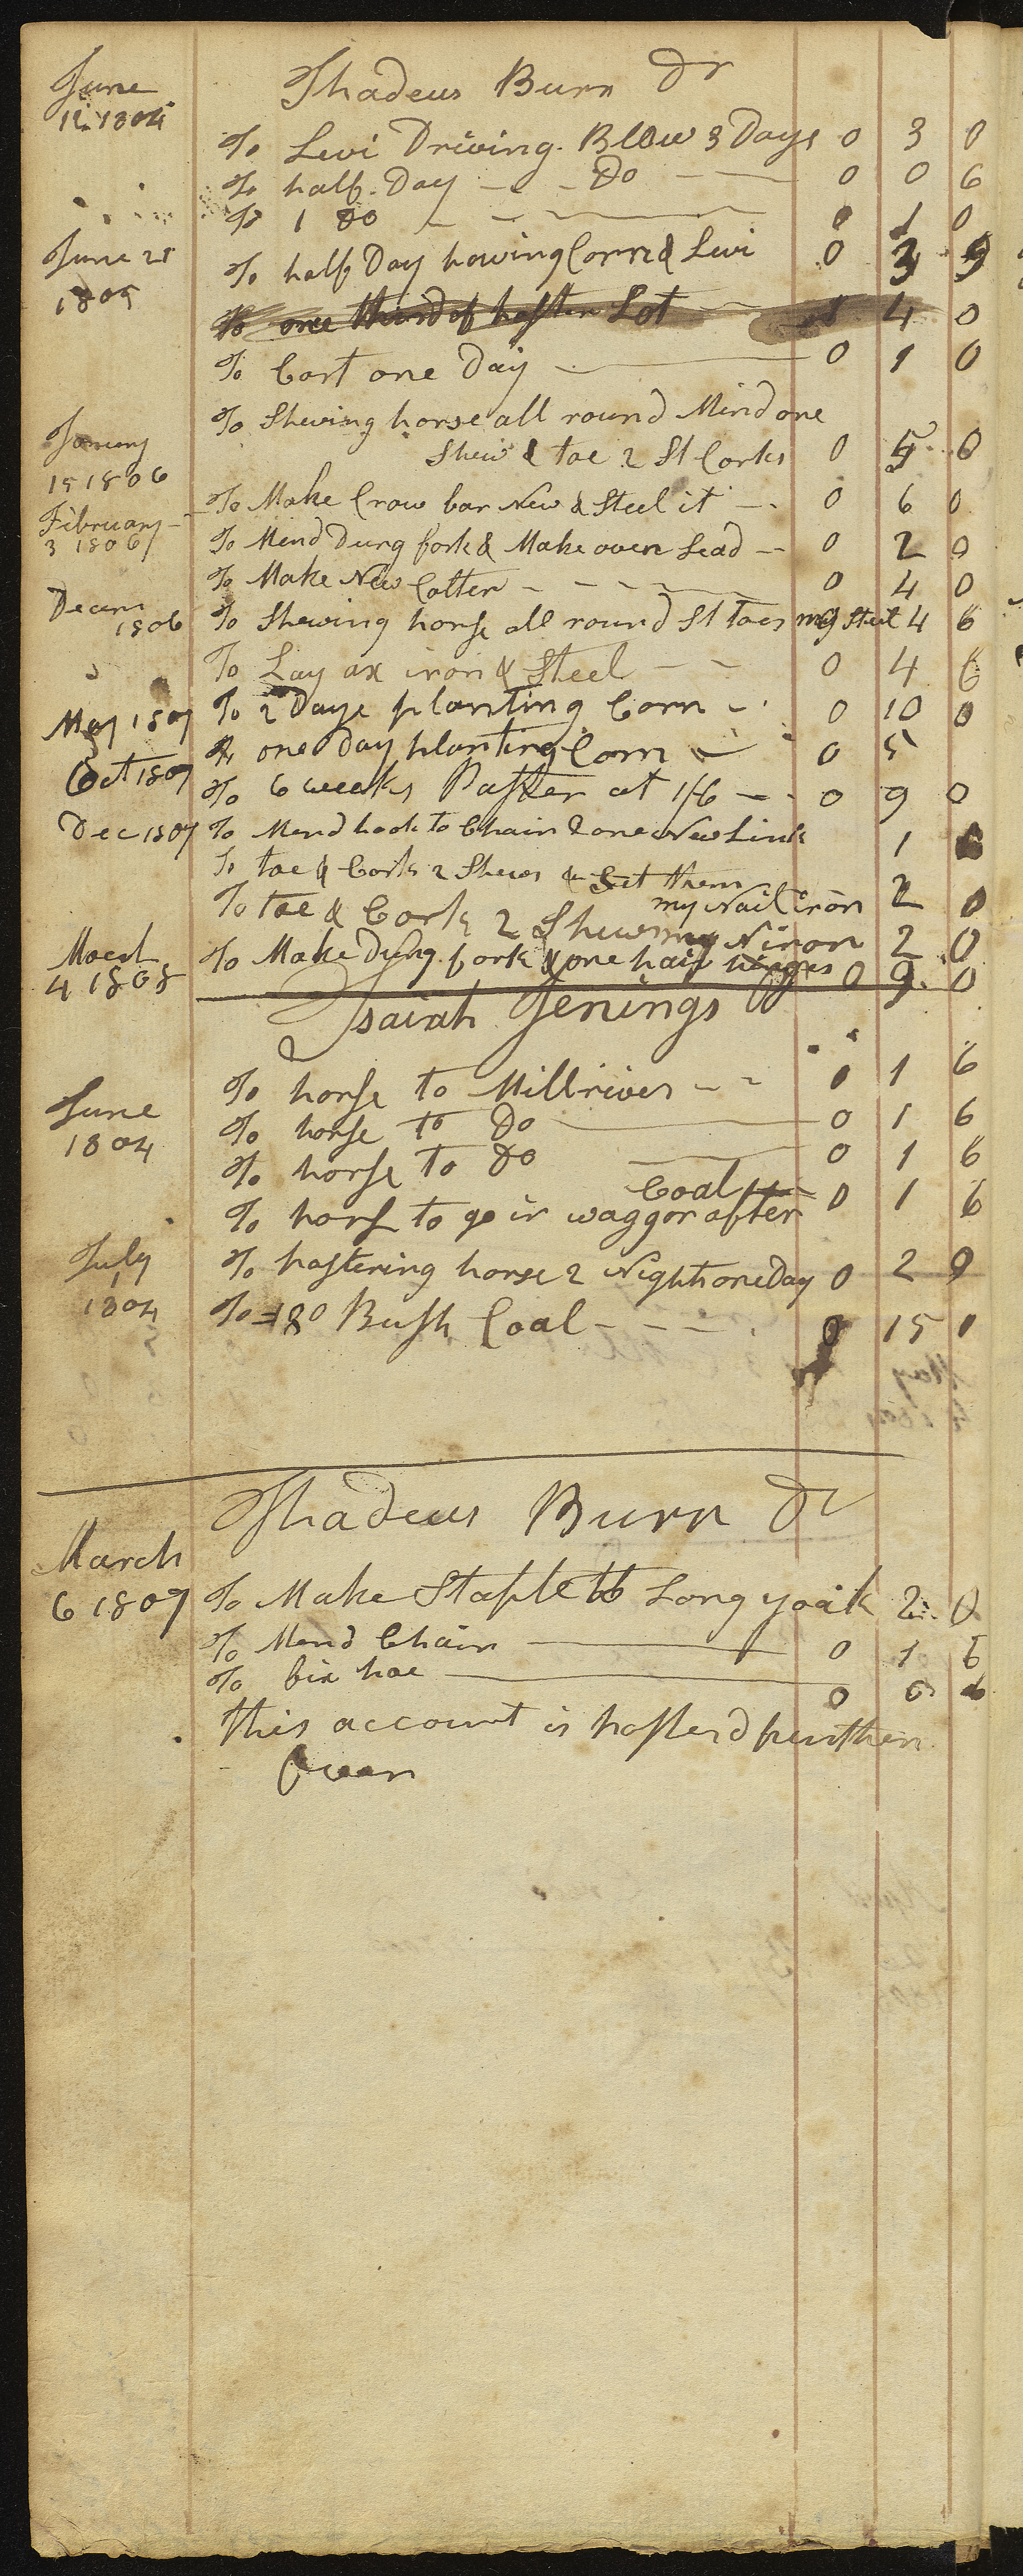 Thadeus Burr Dr
June
12 1804
To Levi Driving Plow 3 Days 0 3 0
To half Day - - Do - - 0 0 6
To 1 Do - - 0 1 0
June 25
1805
To half Day howing Corn & Levi 0 3 9
To one third of paster Lot 4 0
To Cart one Day 0 1 0
To Shewing horse all round Mend one
Shew & toe 2 St Corks 0 5 0
Janury
15 1806
To Make Crow bar New & Steel it - 0 6 0
Fibruary
3 1806
To Mend Dung fork & Make oven Lead - 0 2 0
To Make New Colter - - - 0 4 0
Decem
1806
To Shewing horse all round St toes my Steel 4 6
To Lay ax iron & Steel - - 0 4 6
May 1807
To 2 Days planting Corn - 0 10 0
To one Day planting Corn - 0 5
Oct 1807
To 6 weeks Paster at 1/6 - - 0 9 0
Dec 1807
To Mend hook to Chain & one New Link 1
To toe & Cork 2 Shews & Set them
my Nail iron 2 0
To toe & Cork 2 Shews my N iron 2 0
March
4 1808
To Make Dung fork & one pair hinges 0 9 0
Isaiah Jenings Dr
June
1804
To horse to Millriver - - 0 1 6
To horse to Do 0 1 6
To horse to Do 0 1 6
Coal
To hors to go in waggon after 0 1 6
July
1804
To pastering horse 2 Night one Day 0 2 0
To 180 Bush Coal - - - 0 15 0
Thadeus Burr Dr
March
6 1809
To Make Staple to Long yoak 2 0
To Mend Chain 0 1 6
To fix hoe 0 0 6
this account is posterd further
Over